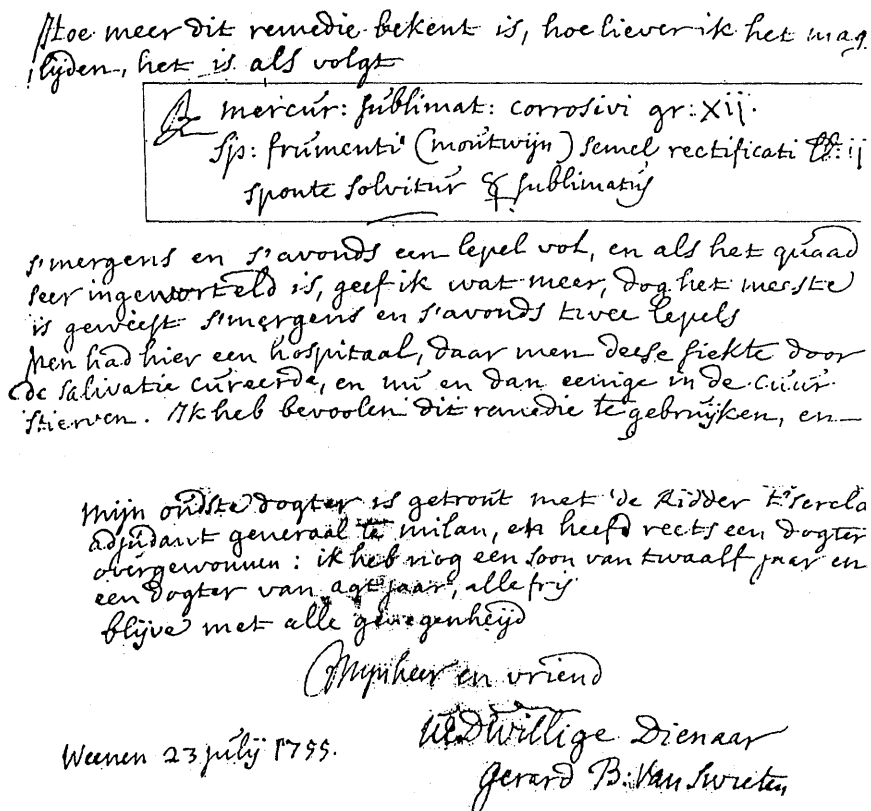 Hoe meer dit remedie bekent is, hoe liever ik het mag
lijden, het is als volgt
℞ mercur: sublimat: corrosivi gr: xij.
sp: frumenti (moutwijn) semel rectificati ℔: ij
sponte solvitur ☿ sublimatus
s'mergens en s'avonds een lepel vol, en als het quaad
seer ingeworteld is, geef ik wat meer, dog het meeste
is geweest s'mergens en s'avonds twee lepels
Men had hier een hospitaal, daar men deese siekte door
de salivatie cureerde, en nu en dan eenige in de cuur
stierven. Ik heb bevoolen dit remedie te gebruijken, en
Mijn oudste dogter is getrout met de Ridder t'sercla
adjudant generaal te milan, en heefd reets een dogter
overgewonnen: ik heb nog een soon van twaalf jaar en
een dogter van agt jaar, alle fris
blijve met alle genegenheijd
Mynheer en vriend
UEDWillige Dienaar
Weenen 23 julij 1755.
Gerard B: Van Swieten